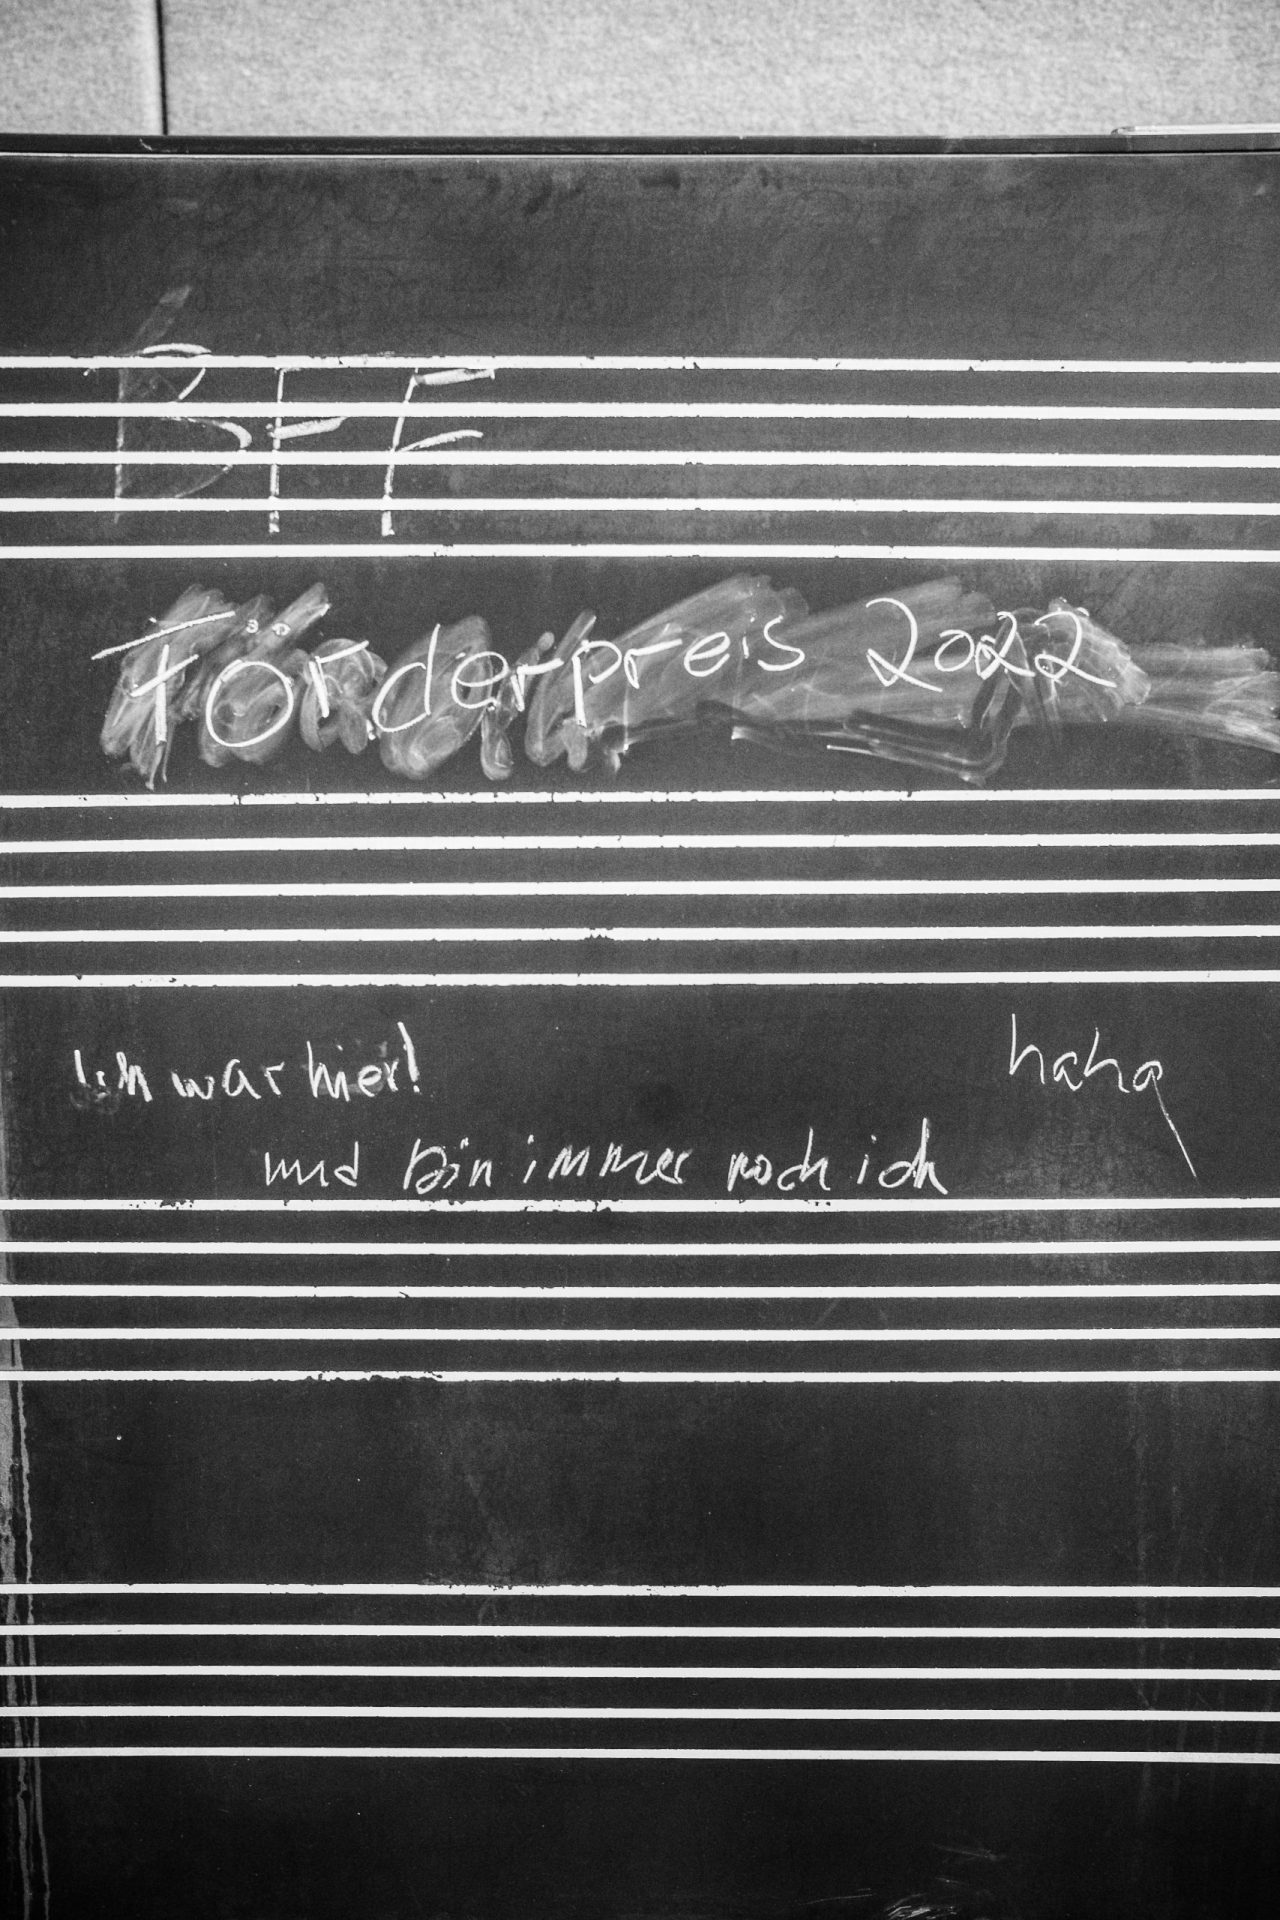 BFF
Förderpreis 2022
Ich war hier! haha
und bin immer noch ich